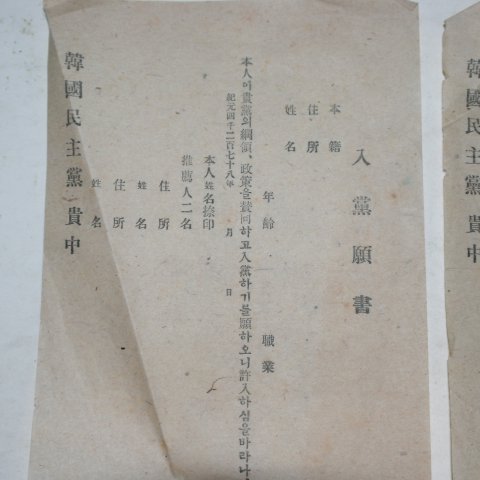 韓國民主黨 貴中
入黨願書
本籍
住所
姓名
年齡 職業
本人이 貴黨의 綱領、政策을 贊同하고 入黨하기를 願하오니 許入하심을 바라나
紀元四千二百七十八年 月 日
本人姓名捺印
推薦人二名
住所
姓名
住所
姓名
韓國民主黨 貴中